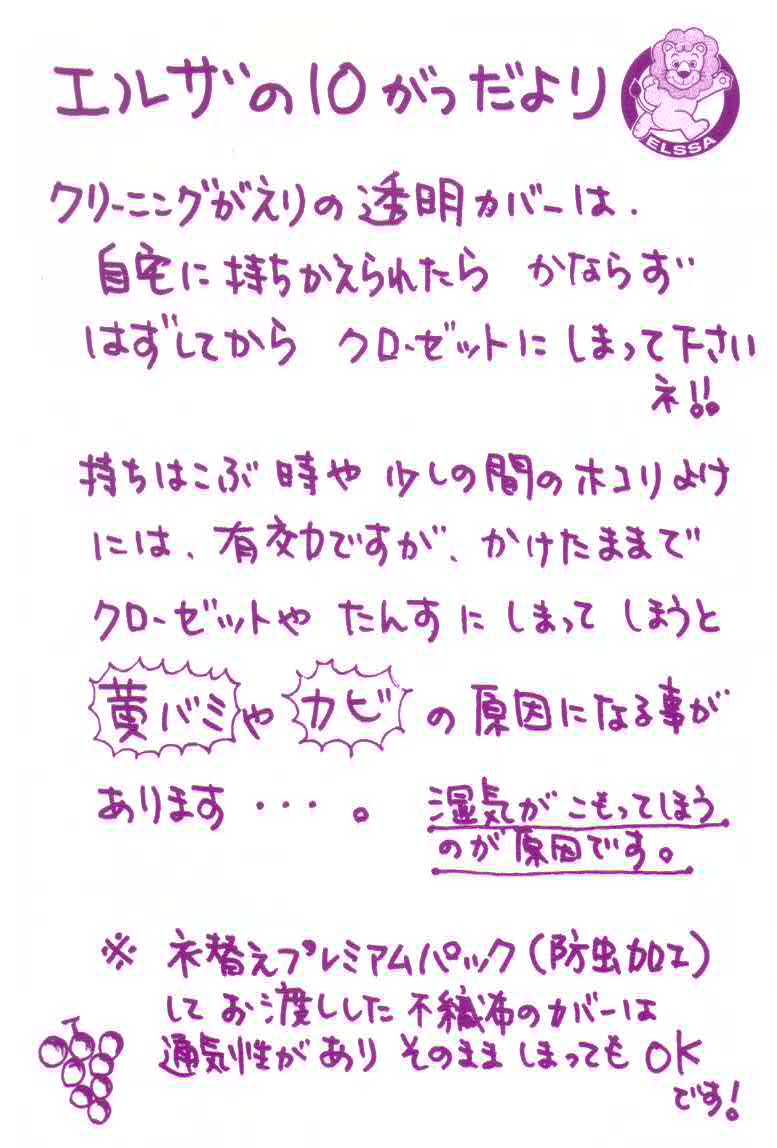 エルザの10がつだより
ELSSA
クリーニングがえりの透明カバーは、
自宅に持ちかえられたら かならず
はずしてから クローゼットに しまって下さい
ネ!!
持ちはこぶ 時や 少しの間のホコリよけ
には、有効ですが、かけたままで
クローゼットや たんすに しまって しまうと
黄バミや カビ の 原因になる事が
あります・・・。 湿気が こもってしまう
のが 原因です。
※ 衣替えプレミアムパック(防虫加工)
して お渡ししした 不織布のカバーは
通気性が あり そのまま しまっても OK
です!